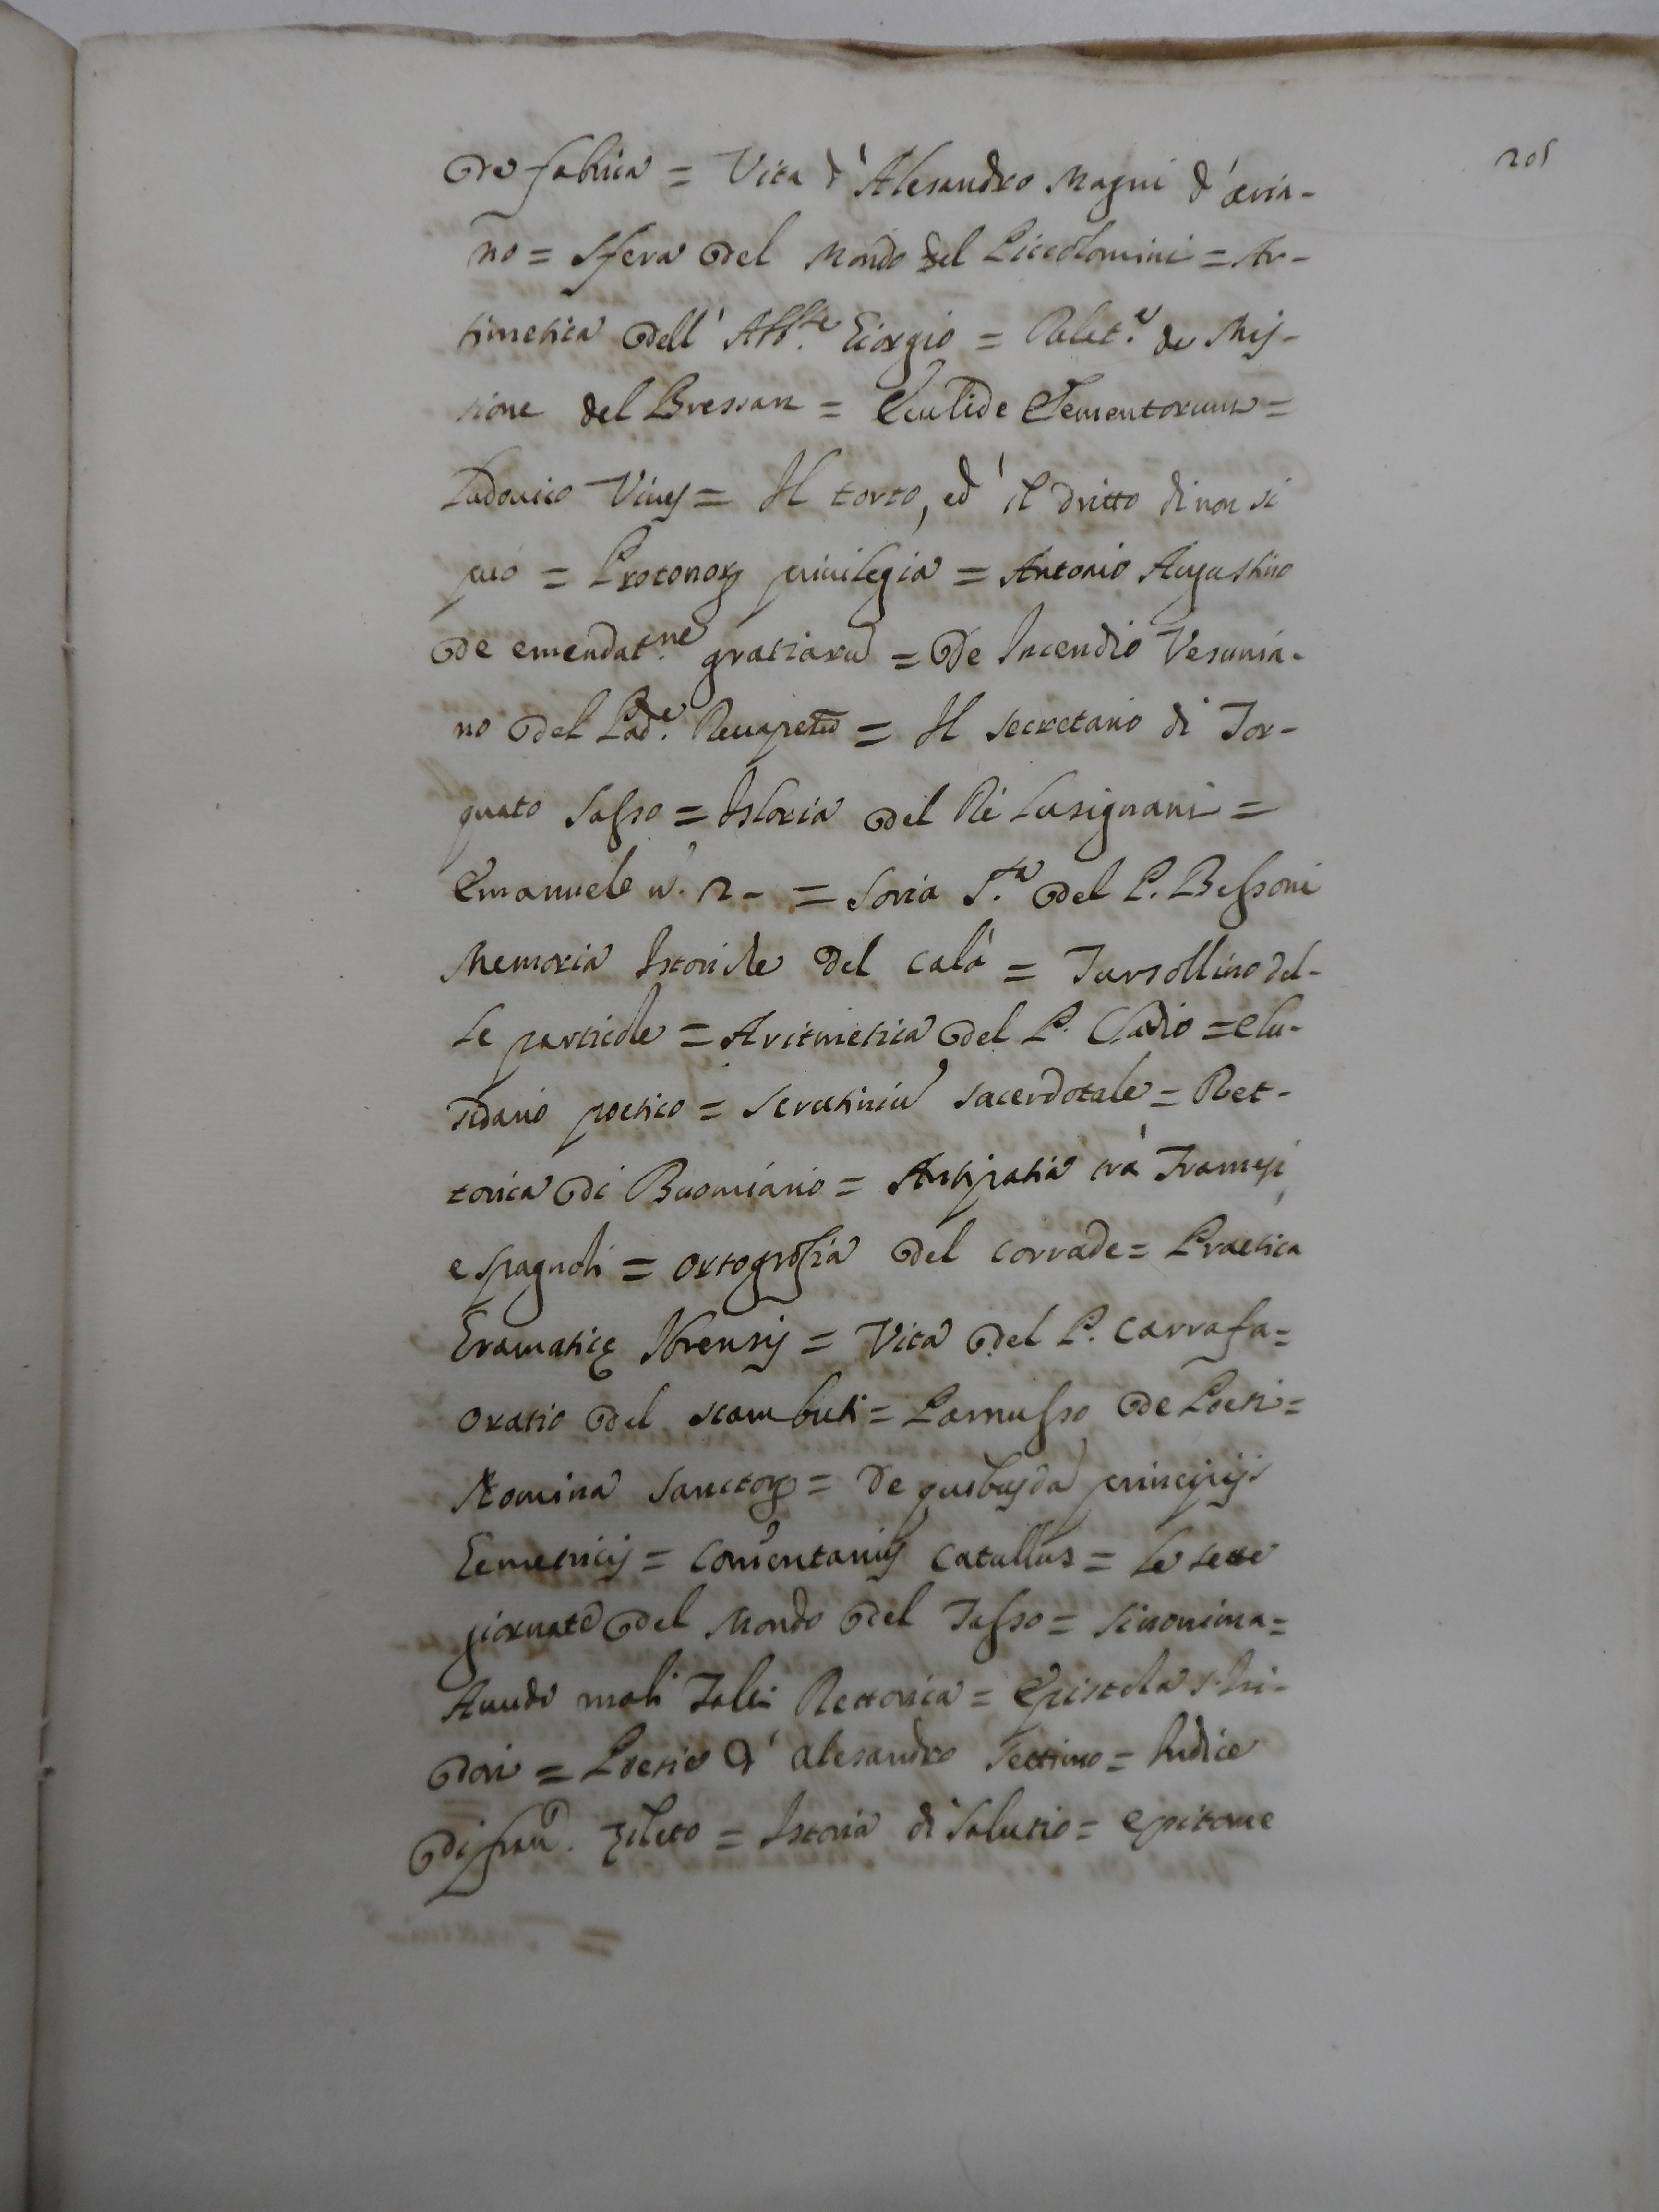 205
De fabrica = Vita d' Alesandro Magni d' arria-
no = Sfera del Mondo del Piccolomini = Ar-
timetica dell' Abb.te Giorgio = de Mis-
tione del Bressan = Euclide Elementorum =
Ludovico Vives = Il torto, ed' il dritto di non si
può = privilegia = Antonio Augustino
De emendat.ne gratiarū = De Incendio Vesuvia-
no del Pad.e Recupeto = Il secretario di Tor-
quato Tasso = Istoria del Rè Lusignani =
Emanuele n. 2 - = Soria S.ta del P. Bessoni
Memoria Istoriche del Calà = Tursollino del-
le particole = Aritmetica del P. Clavio = Elu-
cidario poetico = Scrutiniū sacerdotale = Ret-
torica di = Antipatia trà Francesi,
e Spagnoli = Ortografia del Corrade = Practica
Gramaticę = Vita del P. Carrafa =
Oratio del Scambuti = Parnasso de Poeti =
Nomina Sanctorum = De quibusdā principijs
Gemetricis = Comentarius Catullus = Le sette
giornate del Mondo del Tasso = Sinonima =
mali Rettorica = Epistola
= Poesie d' Alesandro Settimo = Indice
di fran. Zileto = Istoria di Salustio = Epitome